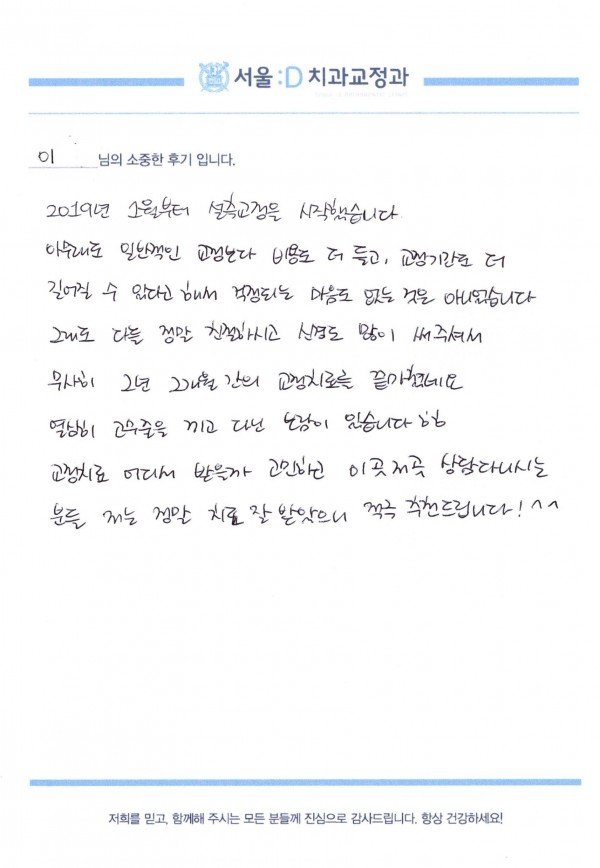 서울:D 치과교정과
이 님의 소중한 후기 입니다.
2019년 1월부터 설측교정을 시작했습니다
아무래도 일반적인 교정보다 비용도 더 들고, 교정기간도 더
길어질 수 있다고 해서 걱정되는 마음도 없는 것은 아니었습니다
그래도 다들 정말 친절하시고 신경도 많이 써주셔서
무사히 2년 2개월 간의 교정치료를 끝마쳤네요
열심히 고무줄을 끼고 다닌 보람이 있습니다 하하
교정치료 어디서 받을까 고민하고 이곳저곳 상담다니시는
분들 저는 정말 치료 잘 받았으니 적극 추천드립니다! ^^
저희를 믿고, 함께해 주시는 모든 분들께 진심으로 감사드립니다. 항상 건강하세요!